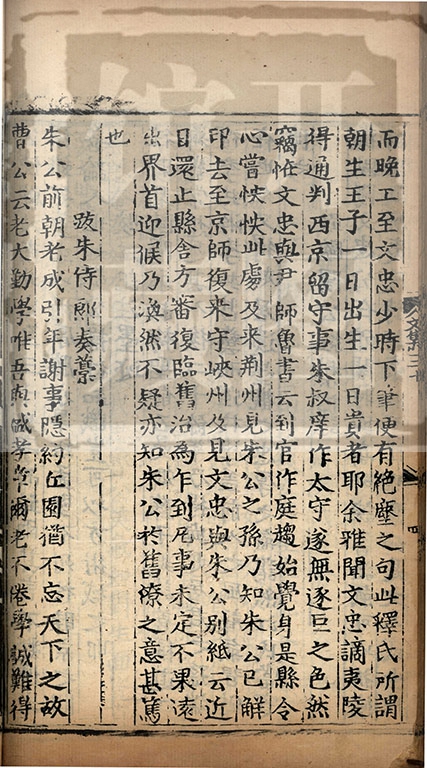 而晚工至文忠少時下筆便有絕塵之句此釋氏所謂
朝生王子一日出生一日貴者耶余雅聞文忠謫夷陵
得通判西京留守事朱叔庠作太守遂無逐臣之色然
竊恠文忠與尹師魯書云到官作庭趨始覺身是縣令
心嘗怏怏此處及来荆州見朱公之孫乃知朱公已解
印去至京師復来守峽州及見文忠與朱公别紙云近
日還止縣舎方審復臨舊治為乍到凢事未定不果遠
出界首迎候乃渙然不疑亦知朱公於舊僚之意甚篤
也
跋朱侍郎奏藁
朱公前朝老成引年謝事隱約丘園猶不忘天下之故
曹公云老大勤學唯吾與袁伯業爾老不倦學誠難得